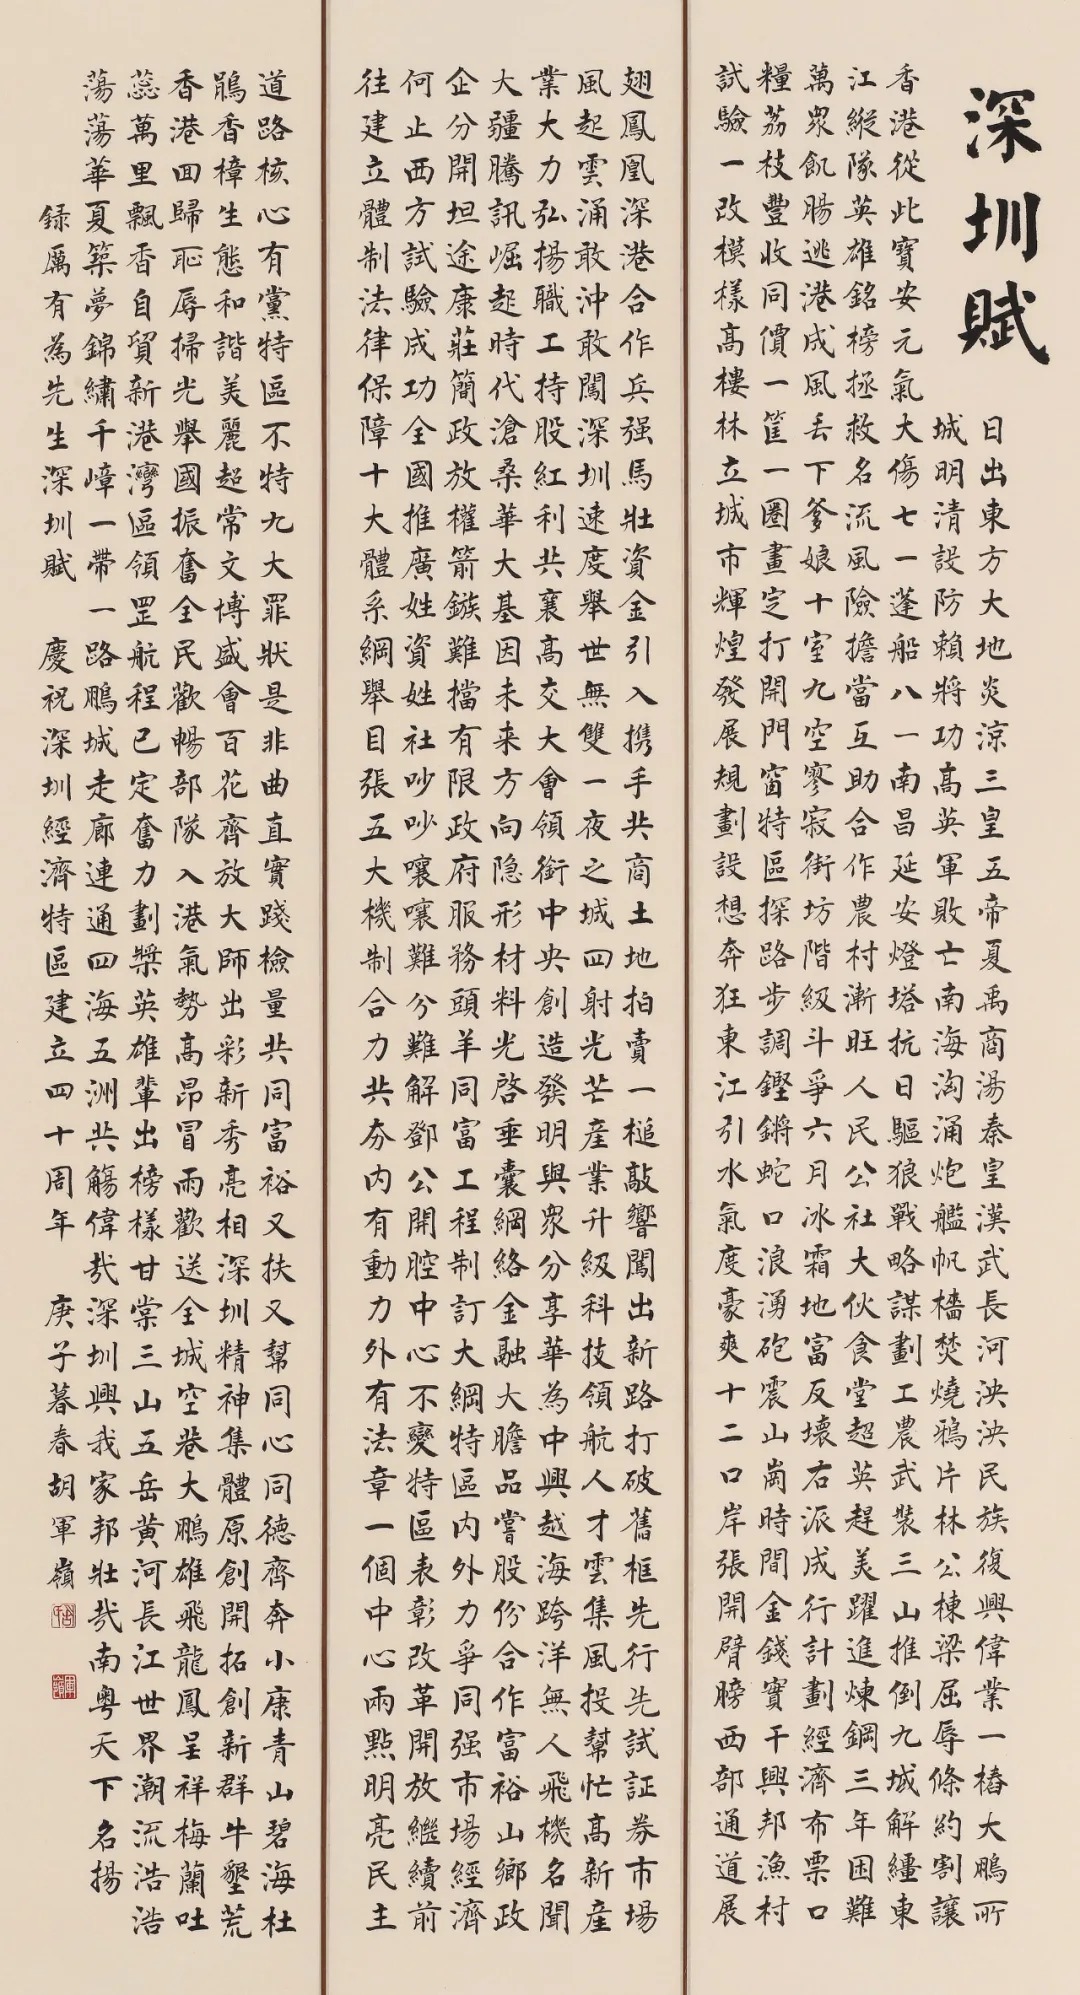 深圳賦
日出東方大地炎涼三皇五帝夏禹商湯秦皇漢武長河泱泱民族復興偉業一樁大鵬所
城明清設防賴將功高英軍敗亡南海洶涌炮艦帆檣焚燒鴉片林公棟梁屈辱條約割讓
香港從此寶安元氣大傷七一蓬船八一南昌延安燈塔抗日驅狼戰略謀劃工農武裝三山推倒九城解繮東
江縱隊英雄銘榜拯救名流風險擔當互助合作農村漸旺人民公社大伙食堂超英趕美躍進煉鋼三年困難
萬眾飢腸逃港成風丢下爹娘十室九空寥寂街坊階級斗爭六月冰霜地富反壞右派成行計劃經濟布票口
糧荔枝豐收同價一筐一圈畫定打開門窗特區探路步調鏗鏘蛇口浪湧砲震山崗時間金錢實干興邦漁村
試驗一改模樣高樓林立城市輝煌發展規劃設想奔狂東江引水氣度豪爽十二口岸張開臂膀西部通道展
翅鳳凰深港合作兵强馬壯資金引入携手共商土地拍賣一槌敲響闖出新路打破舊框先行先試証券市場
風起雲涌敢沖敢闖深圳速度舉世無雙一夜之城四射光芒產業升級科技領航人才雲集風投幫忙高新產
業大力弘揚職工持股紅利共襄高交大會領銜中央創造發明與眾分享華為中興越海跨洋無人飛機名聞
大疆騰訊崛起時代滄桑華大基因未来方向隐形材料光啓垂囊網絡金融大膽品嘗股份合作富裕山鄉政
企分開坦途康莊簡政放權箭鏃難擋有限政府服務頭羊同富工程制訂大綱特區内外力爭同强市場經濟
何止西方試驗成功全國推廣姓資姓社吵吵嚷嚷難分難解鄧公開腔中心不變特區表彰改革開放繼續前
往建立體制法律保障十大體系綱舉目張五大機制合力共夯内有動力外有法章一個中心兩點明亮民主
道路核心有黨特區不特九大罪狀是非曲直實踐檢量共同富裕又扶又幫同心同德齊奔小康青山碧海杜
鵑香樟生態和諧美麗超常文博盛會百花齊放大師出彩新秀亮相深圳精神集體原創開拓創新群牛墾荒
香港回歸耻辱掃光舉國振奮全民歡暢部隊入港氣勢高昂冒雨歡送全城空巷大鵬雄飛龍鳳呈祥梅蘭吐
蕊萬里飄香自貿新港灣區領罡航程已定奮力劃槳英雄輩出榜樣甘棠三山五岳黄河長江世界潮流浩浩
蕩蕩華夏築夢錦繡千嶂一帶一路鵬城走廊連通四海五洲共觴偉哉深圳興我家邦壯哉南粵天下名揚
録厲有為先生深圳賦 慶祝深圳經濟特區建立四十周年 庚子暮春胡軍嶺